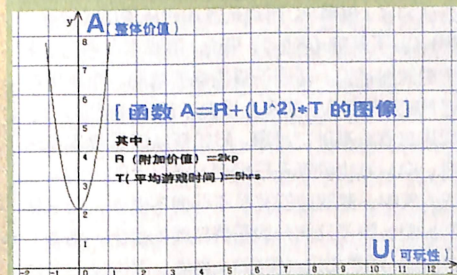 y A(整体价值)
8
7
[ 函数 A=R+(U^2)*T 的图像 ]
6
5
其中：
R（附加价值）=2kp
4
T(平均游戏时间)=5hrs
3
2
1
U(可玩性)
-2 -1 0 1 2 3 4 5 6 7 8 9 10 11 12